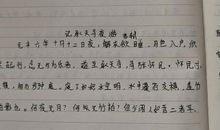 记承天寺夜游 苏轼
元丰六年十月十二日夜，解衣欲睡，月色入户，欣
然起行，念无与为乐者，遂至承天寺，寻张怀民，怀民亦
未寝，相与步于中庭。庭下如积水空明，水中藻荇交横，盖竹
柏影也。何夜无月？何处无竹柏？但少闲人如吾二人者